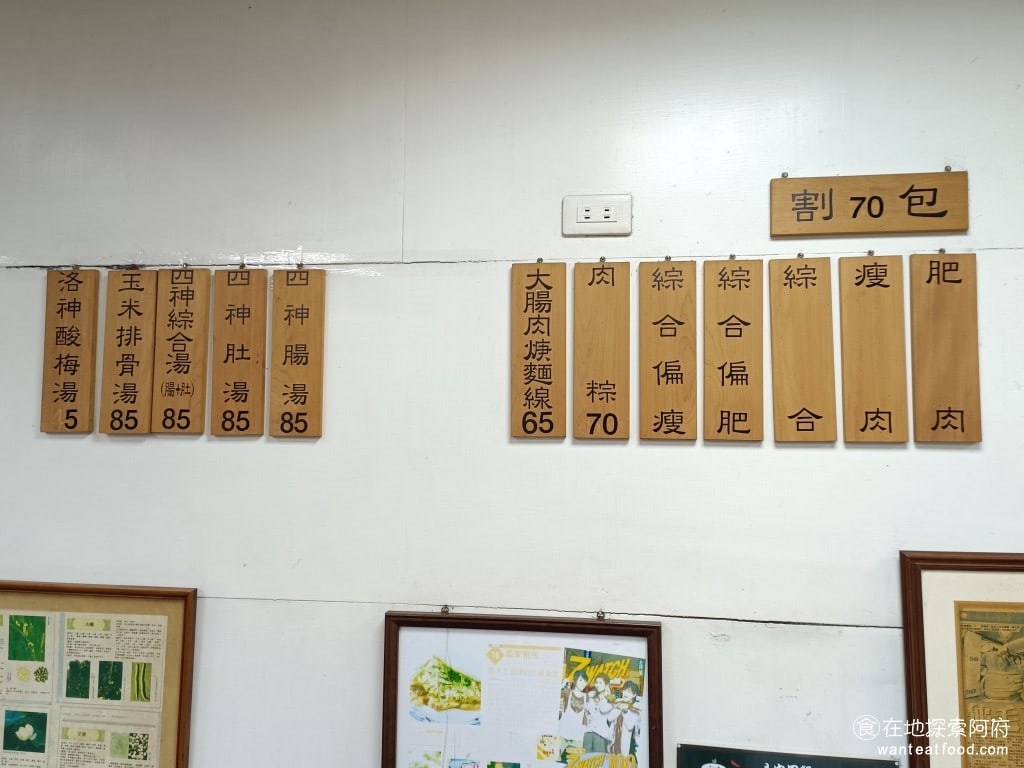 割 70 包
肥肉
瘦肉
綜合
綜合偏肥
綜合偏瘦
肉粽 70
大腸肉焿麵線 65
四神腸湯 85
四神肚湯 85
四神綜合湯 (腸+肚) 85
玉米排骨湯 85
洛神酸梅湯 5
ZWATCH
食在地探索阿府
wanteatfood.com